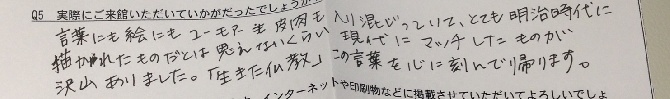 Q5 実際にご来館いただいていかがだったでしょうか
言葉にも絵にもユーモアと皮肉も入り混じっていて、とても明治時代に
描かれたものだとは思えないくらい現代にマッチしたものが
沢山ありました。「生きた仏教」この言葉を心に刻んで帰ります。
インターネットや印刷物などに掲載させていただいてよろしいでしょ